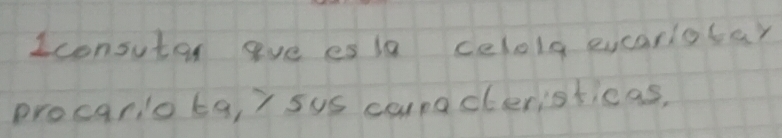 1 consutar que es la celola eucariota y
procariota, y sus caracteristicas.